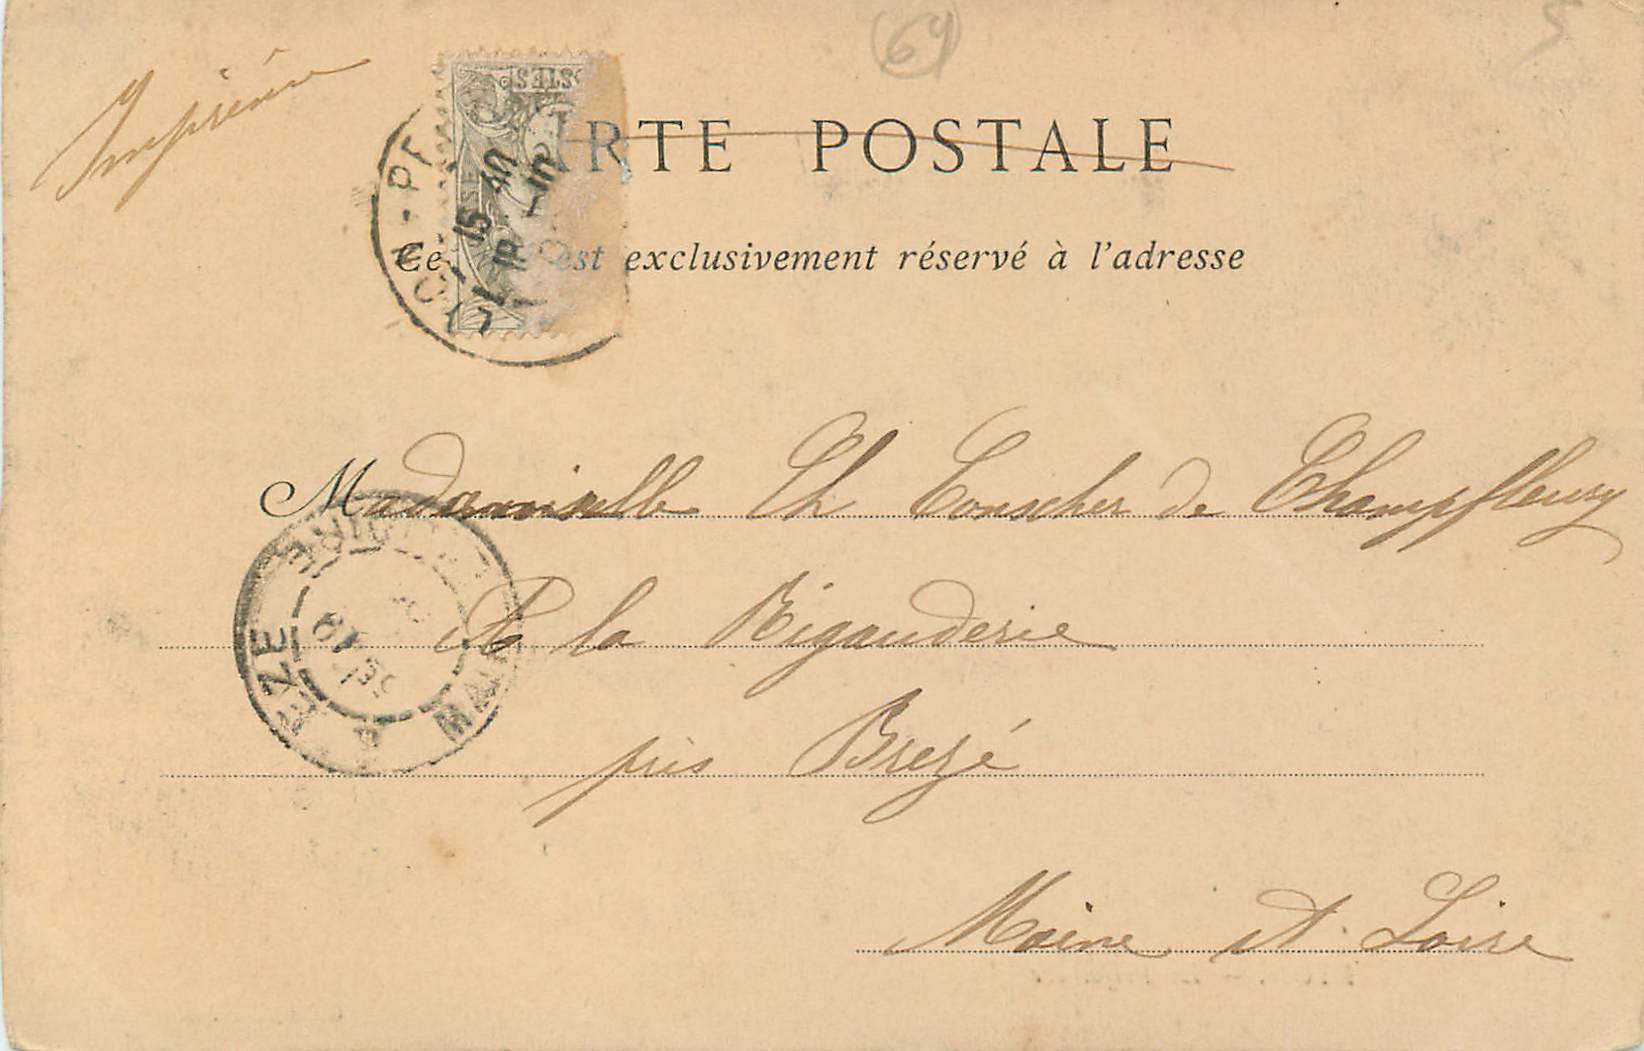 (64)
Imprimé
STES
RTE POSTALE
Ce est exclusivement réservé à l'adresse
15 40
Mademoiselle Ch Touscher de Champfleury
A la Rigauderie
près Brezé
Maine et Loire
EZE
MAINE
LOIRE